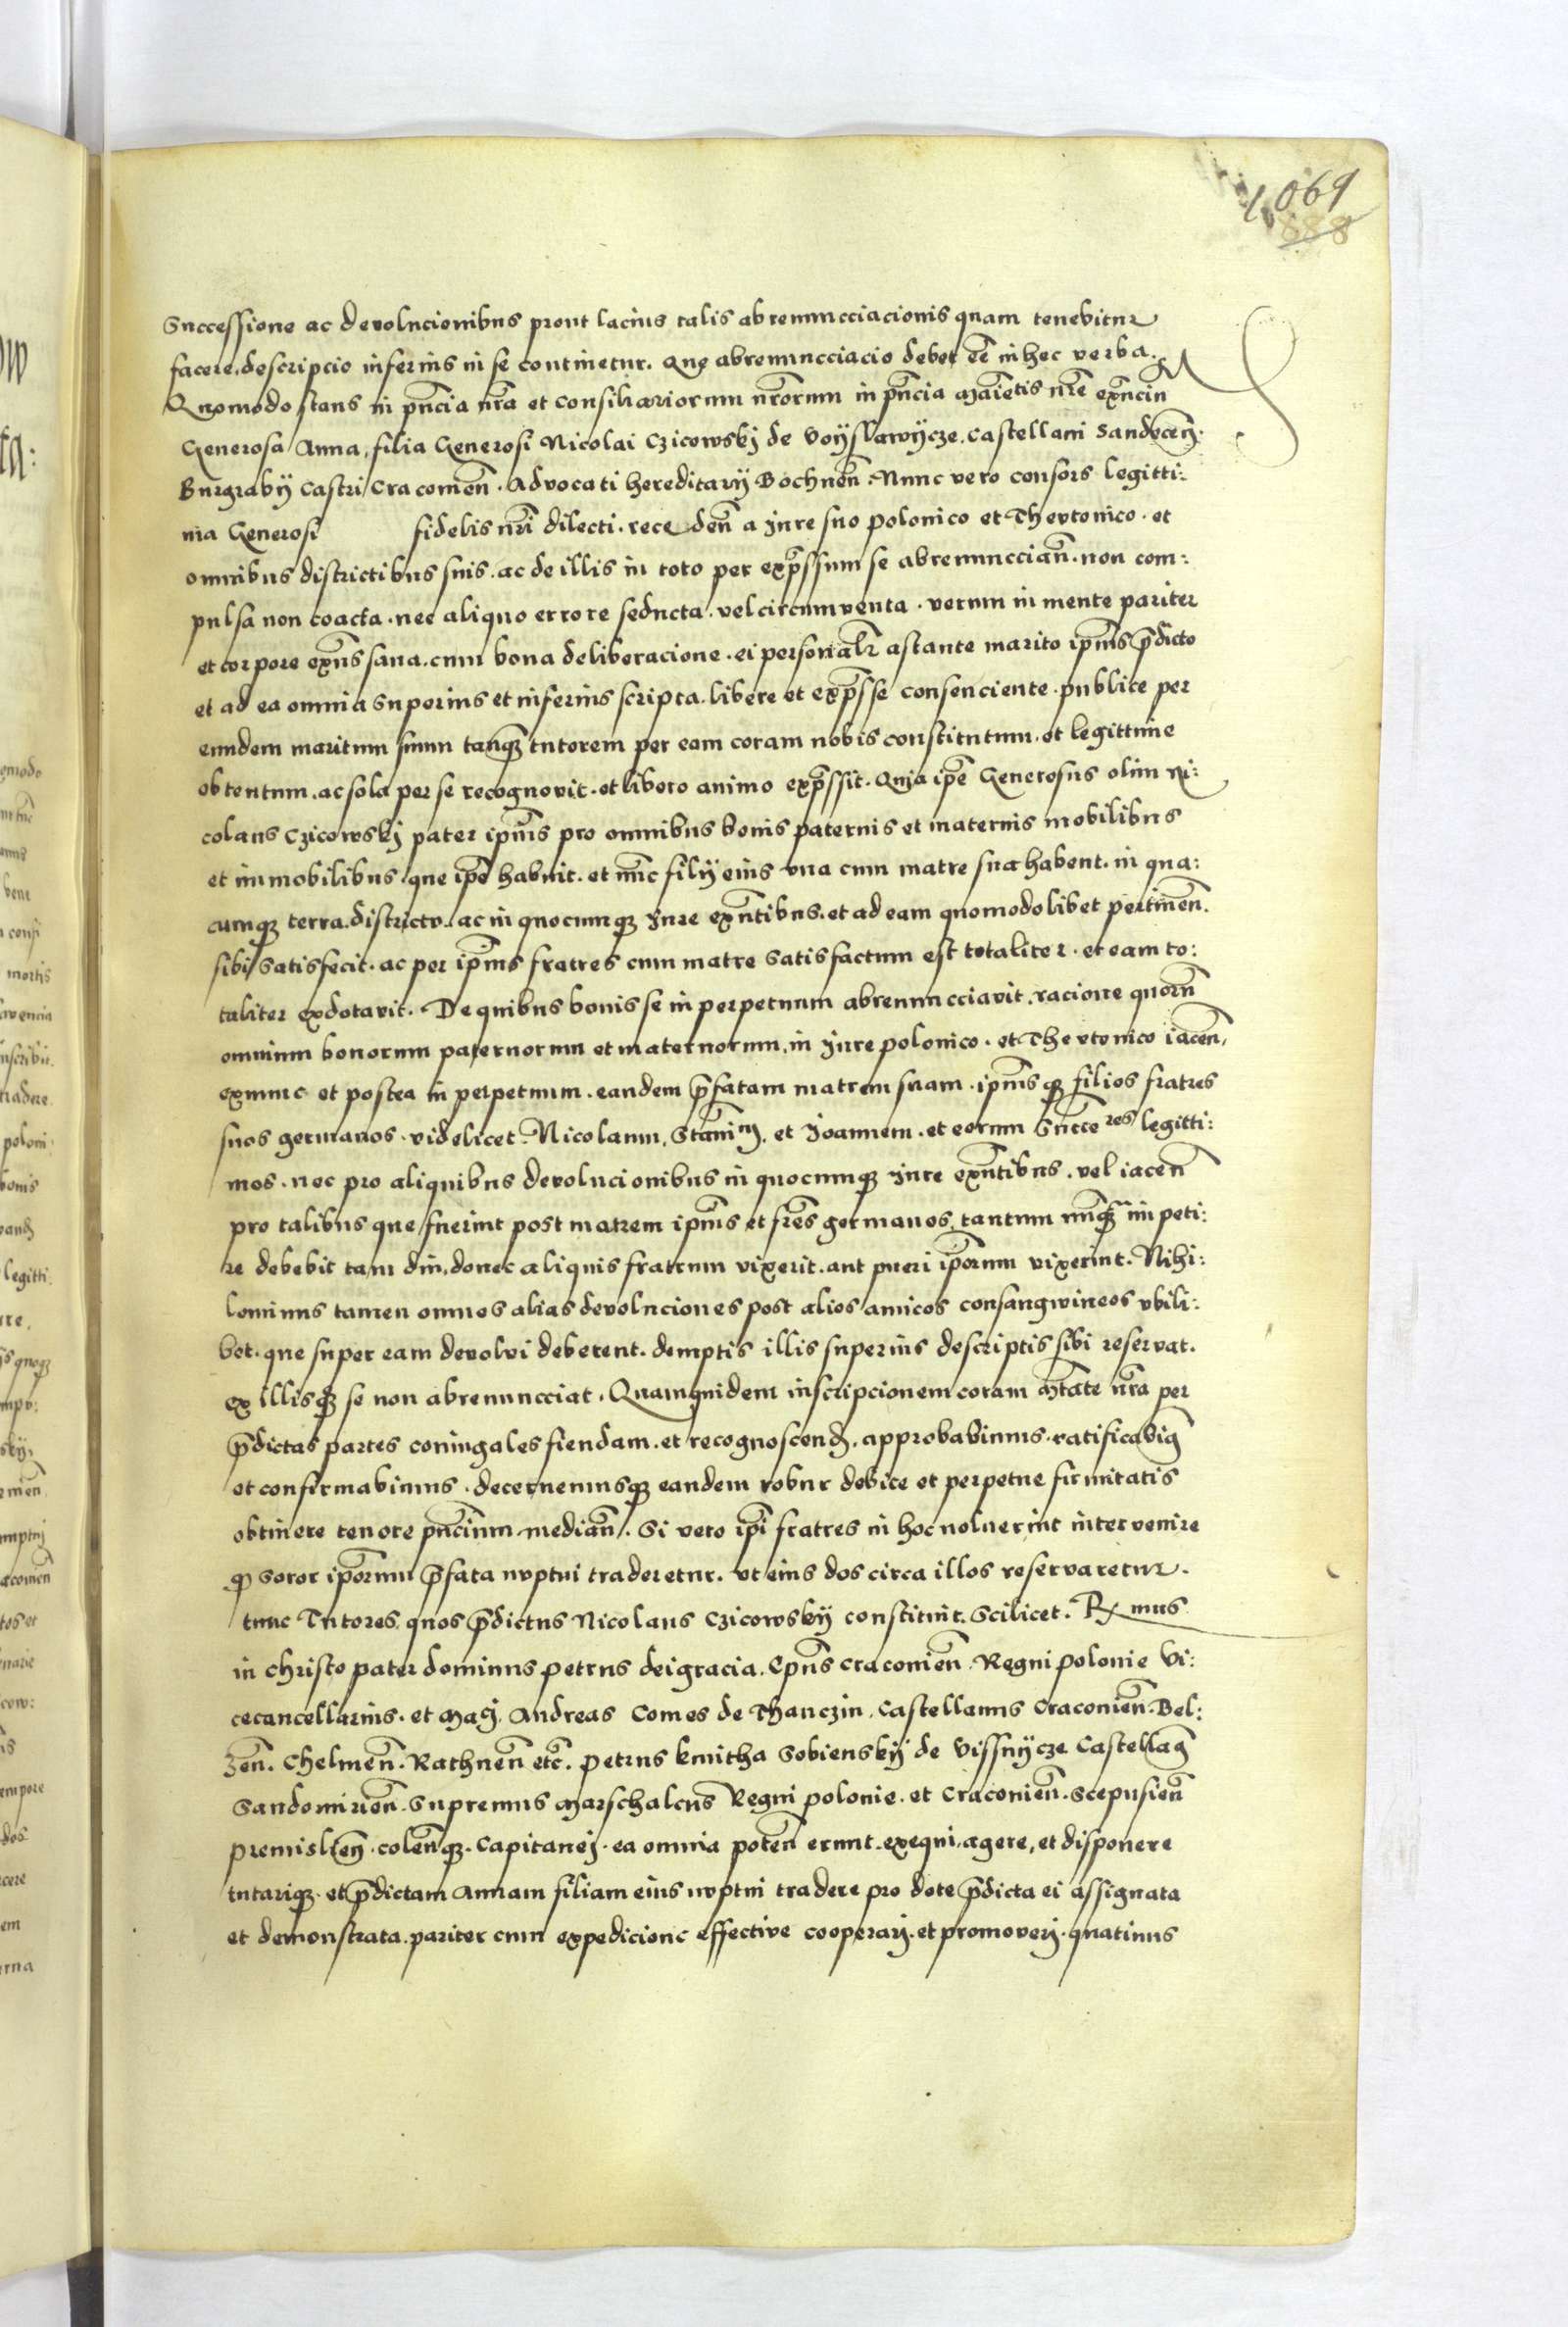 1069
888
Successione ac devolucionibus prout lacius talis abrenuncciacionis quam tenebitur
facere, descripcio inferius in se continetur. Que abrenuncciacio debet ee͞ in hec verba.
Quomodo stans in pn͞cia nr͞a et consiliariorum nr͞orum in pn͞cia Maie͞tis nr͞e exn͞cin
Generosa Anna, filia Generosi Nicolai Czicowskj de Voyslawycze. Castellani Sandecen͞.
Burgrabij Castri Cracomen͞. Advocati hereditarij Bochnen͞. Nunc vero consors legitti:
ma Generosi fidelis nr͞i dilecti. recedem͞ a Jure suo polonico et Thevtonico. et
omnibus districtibus suis. ac de illis in toto per exp͞ssum se abrenunccian͞. non com:
pulsa non coacta. nec aliquo errore seducta. vel circumventa. verum in mente pariter
et corpore exn͞s sana. cum bona deliberacione. ei personal͞r astante marito ipi͞us p͞dicto
et ad ea omnia superius et inferius scripta. libere et exp͞sse consenciente. publice per
eundem maritum suum tanq͞ꝫ tutorem per eam coram nobis constitutum. et legittime
obtentum. ac sola per se recognovit. et libero animo exp͞ssit. Quia ipe͞ Generosus olim Ni:
colaus Czicowskj pater ipi͞us pro omnibus bonis paternis et maternis mobilibus
et immobilibus. que ipe͞ habuit. et nu͞c filij eius vna cum matre sua habent. in qua:
cumqꝫ terra. districtu. ac in quocumqꝫ Jure exn͞tibus. et ad eam quomodolibet pertinen͞.
sibi satisfecit. ac per ipi͞us fratres cum matre satisfactum est totaliter. et eam to:
taliter exdotavit. De quibus bonis se in perpetuum abrenuncciavit. racione quoru͞
omnium bonorum paternorum et maternorum. in Jure polonico. et Thevtonico iacen͞,
exnunc et postea in perpetuum. eandem p͞fatam matrem suam. ipi͞usqꝫ filios fratres
suos germanos. videlicet Nicolaum, Stani͞m, et Joannem. et eorum Succe͞res legitti:
mos. nec pro aliquibus devolucionibus in quocumqꝫ Jure exn͞tibus. vel iacen͞
pro talibus que fuerint post matrem ipi͞us et fr͞es germanos, tantum nu͞qꝫ͞ impeti:
re debebit tam diu, donec aliquis fratrum vixerit. aut pueri ipo͞rum vixerint. Nihi:
lominus tamen omnes alias devoluciones post alios amicos consangwineos vbili:
bet. que super eam devolvi deberent. demptis illis superius descriptis sibi reservat.
ex illisqꝫ se non abrenuncciat. Quamquidem inscripcionem coram Mta͞te nr͞a per
p͞dictas partes coniugales fiendam. et recognoscenđ. approbabimus. ratificabim͞
et confirmabimus. decernemusqꝫ eandem robur debite et perpetue firmitatis
obtinere tenore pn͞cium median͞. Si vero ipi͞ fratres in hoc noluerint intervenire
ꝙ soror ipo͞rum p͞fata nvptui traderetur. vt eius dos circa illos reservaretur.
tunc Tutores, quos p͞dictus Nicolaus Czicowskij constituit. Scilicet. Rx mus
in christo pater dominus petrus dei gracia. Epus͞ Craconien͞. Regni polonie Vi:
cecancellarius. et Mag͞. Andreas Comes de Thanczin. Castellanus Craconien͞. Bel:
zen͞. Chelmen͞. Rathnen͞ etc͞. Petrus kmitha Sobienskij de Vissnycze Castellan͞
Sandomirien͞. Supremus Marschalcus Regni polonie. et Craconien͞. Scepusien͞
premislien͞. colen͞qꝫ. Capitanej. ea omnia poten͞ erunt. exequi. agere, et disponere
tutariqꝫ. et p͞dictam Annam filiam eius nvptui tradere pro dote p͞dicta ei assignata
et demonstrata. pariter cum expedicione effective cooperarj. et promoverj. quatinus